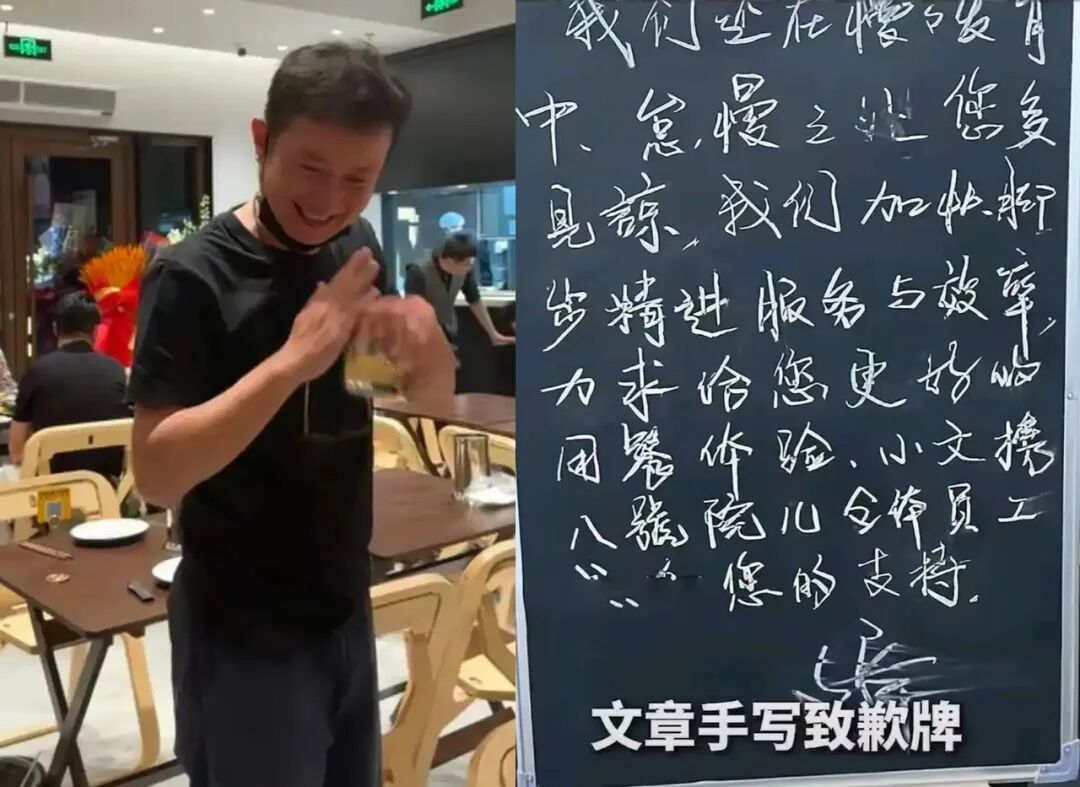 我们还在慢々发育
中、怠慢之处您多
见諒,我们加快脚
步精进服务与效率,
力求给您更好的
用餐体验、小文携
八號院儿全体员工
您的支持.
文章手写致歉牌